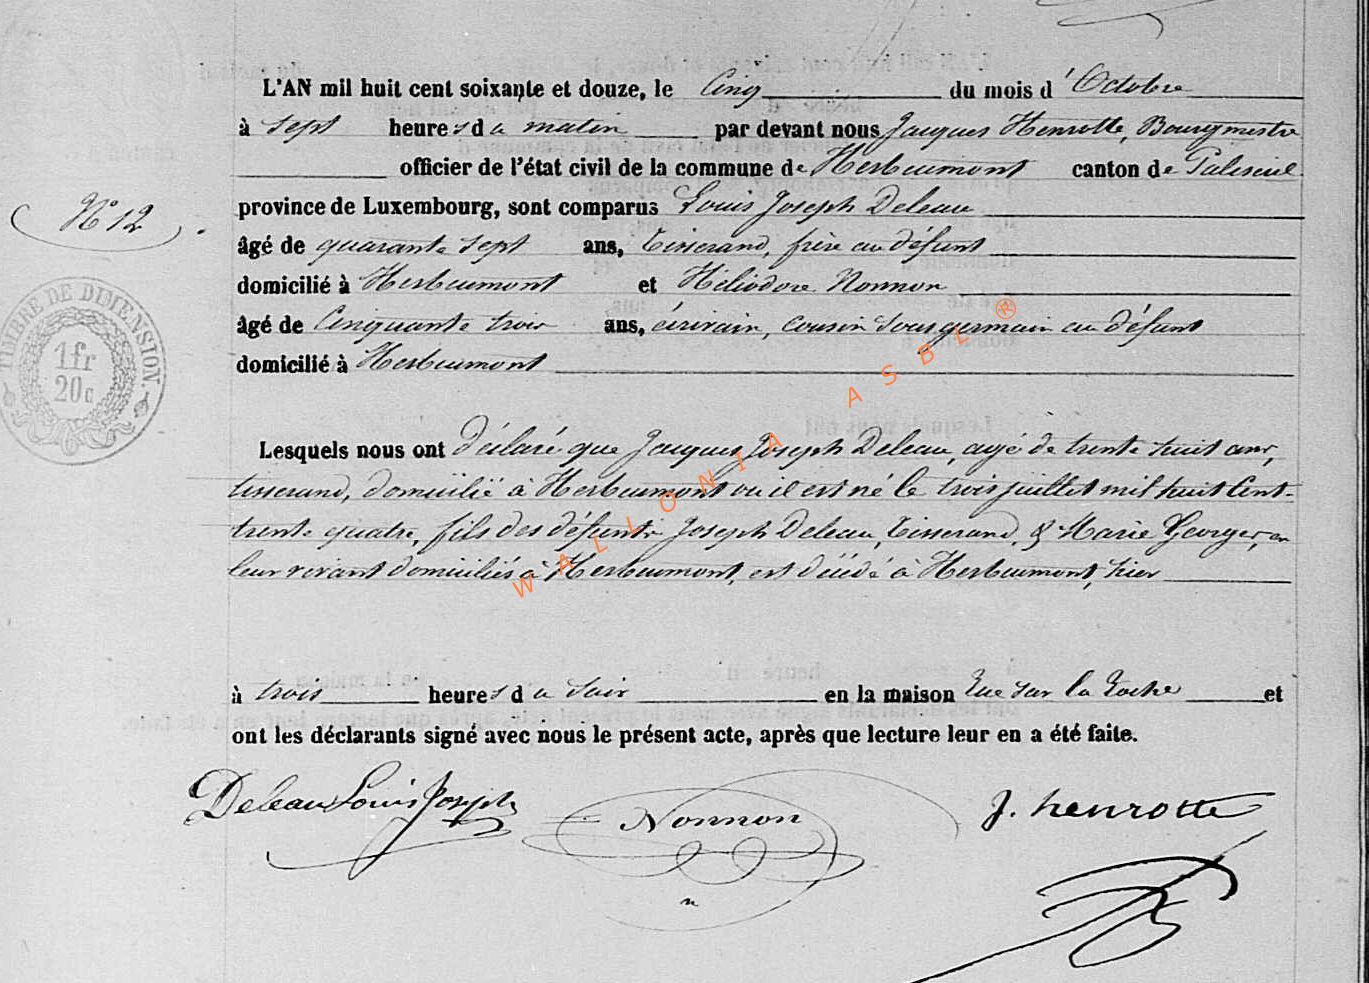 L'AN mil huit cent soixante et douze, le Cinq du mois d'Octobre
à sept heures du matin par devant nous Jacques Henrotte, Bourgmestre
officier de l'état civil de la commune de Herbeumont canton de Paliseul
N° 12
province de Luxembourg, sont comparus Louis Joseph Deleau
âgé de quarante sept ans, Tisserand, frère au défunt
domicilié à Herbeumont et Héliodore Nonnon
âgé de Cinquante trois ans, écrivain, Cousin sous germain au défunt
domicilié à Herbeumont
TIMBRE DE DIMENSION.
1fr
20c
Lesquels nous ont déclaré que Jacques Joseph Deleau, agé de trente huit ans,
tisserand, domicilié à Herbeumont ou il est né le trois juillet mil huit Cent-
trente quatre, fils des défunts Joseph Deleau, Tisserand, & Marie Georges, en
leur vivant domiciliés à Herbeumont, est décédé à Herbeumont, hier
à trois heures du soir en la maison Rue sur la Roche et
ont les déclarants signé avec nous le présent acte, après que lecture leur en a été faite.
Deleau Louis Joseph Nonnon J. henrotte
WALLONIA ASBL ®